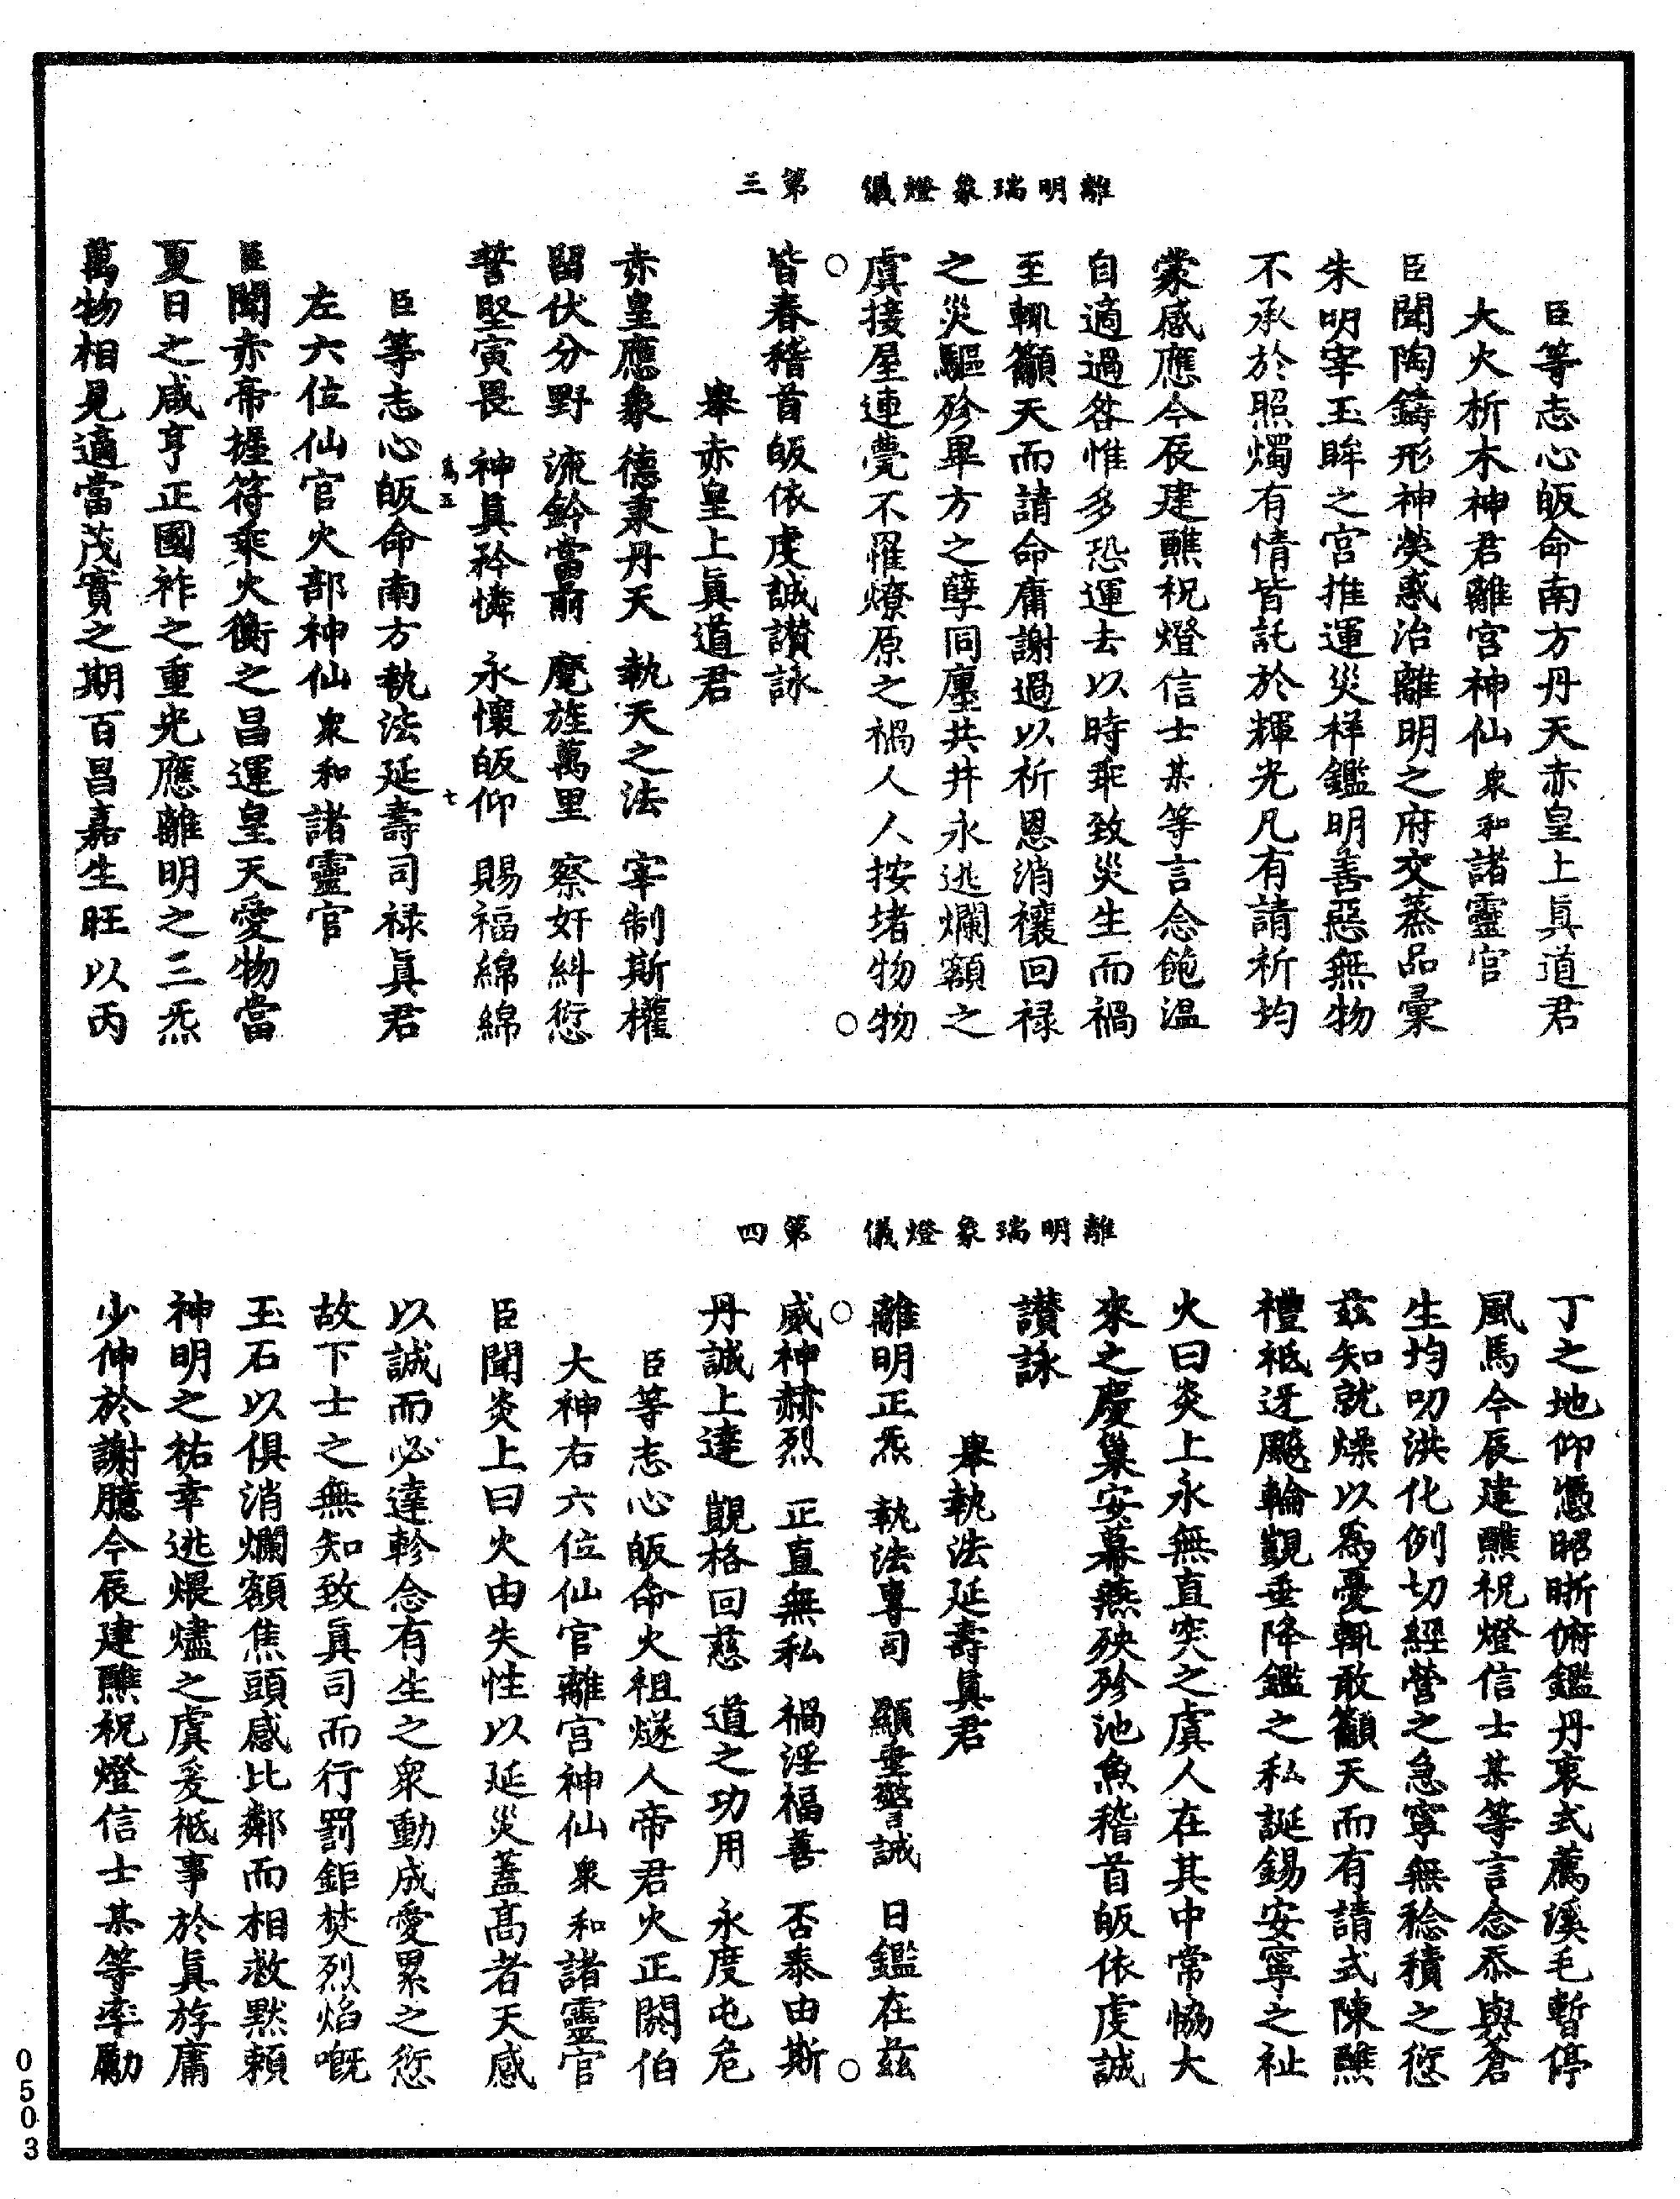 離明瑞象燈儀　第三
臣等志心皈命南方丹天赤皇上眞道君
大火析木神君離宮神仙衆和諸靈官
臣聞陶鑄形神熒惑治離明之府交蒸品彙
朱明宰玉眸之宮推運災祥鑑明善惡無物
不承於照燭有情皆託於輝光凡有請祈均
蒙感應今辰建醮祝燈信士某等言念飽溫
自適過咎惟多恐運去以時乖致災生而禍
至輒籲天而請命庸謝過以祈恩消禳回祿
之災驅殄畢方之孽同廛共井永逃爛額之
虞接屋連甍不罹燎原之禍人人按堵物物
皆春稽首皈依虔誠讃詠
舉赤皇上眞道君
赤皇應象　德秉丹天　執天之法　宰制斯權
留伏分野　流鈴當前　麾旌萬里　察奸糾愆
誓堅寅畏　神眞矜憐　永懷皈仰　賜福綿綿
臣等志心皈命南方執法延壽司祿眞君
左六位仙官火部神仙衆和諸靈官
臣聞赤帝握符乘火衡之昌運皇天愛物當
夏日之咸亨正國祚之重光應離明之三炁
萬物相見適當茂實之期百昌嘉生旺以丙
離明瑞象燈儀　第四
丁之地仰憑昭晣俯鑑丹衷式薦溪毛暫停
風馬今辰建醮祝燈信士某等言念忝與蒼
生均叨洪化例切經營之急寧無稔積之愆
茲知就燥以爲憂輒敢籲天而有請式陳醮
禮祗迓飈輪覬垂降鑑之私誕錫安寧之祉
火曰炎上永無直突之虞人在其中常恊大
來之慶巢安幕燕殃殄池魚稽首皈依虔誠
讃詠
舉執法延壽眞君
離明正炁　執法專司　顯垂警誡　日鑑在茲
威神赫烈　正直無私　禍淫福善　否泰由斯
丹誠上達　覬格回慈　道之功用　永度屯危
臣等志心皈命火祖燧人帝君火正閼伯
大神右六位仙官離宮神仙衆和諸靈官
臣聞炎上曰火由失性以延災蓋高者天感
以誠而必達軫念有生之衆動成愛累之愆
故下士之無知致眞司而行罰鉅焚烈焰嘅
玉石以俱消爛額焦頭感比鄰而相救默賴
神明之祐幸逃煨燼之虞爰祗事於眞斿庸
少伸於謝臆今辰建醮祝燈信士某等率勵
0503